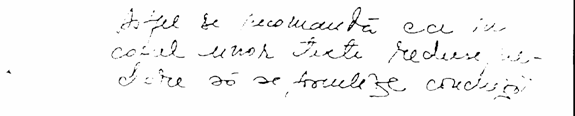 Astfel se recomandă ca în
cazul unor texte reduse, ve-
dere să se formuleze concluzii